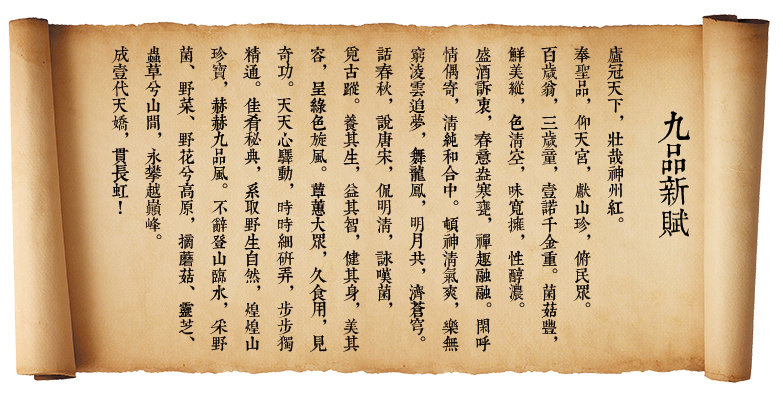 九品新賦
廬冠天下，壯哉神州紅。
奉聖品，仰天宮，獻山珍，俯民眾。
百歲翁，三歲童，壹諾千金重。菌菇豐，
鮮美縱，色清空，味寬擁，性醇濃。
盛酒訴衷，春意盎寒甕，禪趣融融。閑呼
情偶寄，清純和合中。頓神清氣爽，樂無
窮淩雲追夢，舞龍鳳，明月共，濟蒼穹。
話春秋，說唐宋，侃明清，詠嘆菌，
覓古蹤。養其生，益其智，健其身，美其
容，呈綠色旋風。蕈蕙大眾，久食用，見
奇功。天天心驛動，時時細研弄，步步獨
精通。佳肴秘典，系取野生自然，煌煌山
珍寶，赫赫九品風。不辭登山臨水，采野
菌、野菜、野花兮高原，摘蘑菇、靈芝、
蟲草兮山間，永攀越巔峰。
成壹代天嬌，貫長虹！